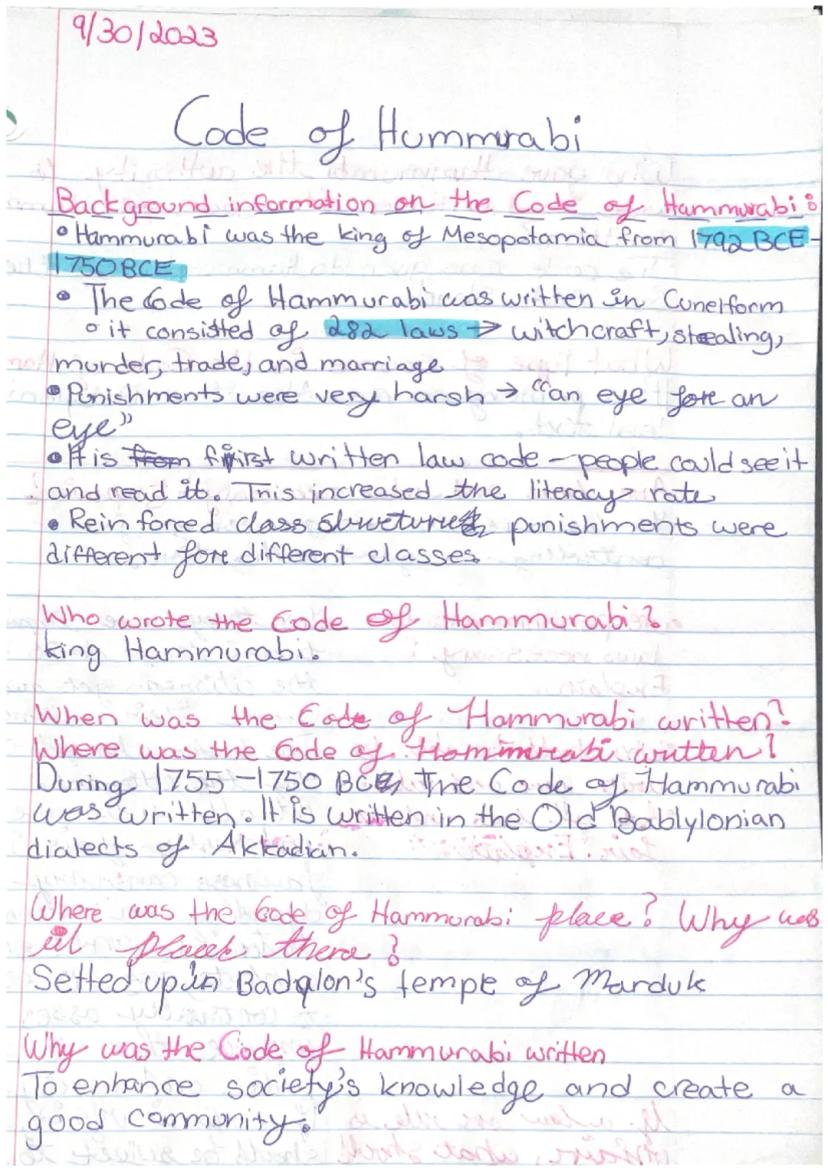 9/30/2023
Code of Hummurabi
Background information on the Code of Hammurabi:
• Hammurabi was the king of Mesopotamia from 1792 BCE-
1750 BCE
• The Code of Hammurabi was written in Cuneiform
○ it consisted of 282 laws → witchcraft, stealing,
murder, trade, and marriage
• Punishments were very harsh → "an eye for an
eye"
• It is from first written law code - people could see it
and read it. This increased the literacy rate
• Reinforced class structure punishments were
different for different classes.
Who wrote the Code of Hammurabi?
king Hammurabi.
When was the Code of Hammurabi written?
Where was the Code of Hammurabi written?
During 1755-1750 BCE, The Code of Hammurabi
was written. It is written in the Old Bablylonian
dialects of Akkadian.
Where was the Code of Hammurabi place? Why was
it place there?
Setted up in Badylon's temple of Marduk
Why was the Code of Hammurabi written
To enhance society's knowledge and create a
good community.